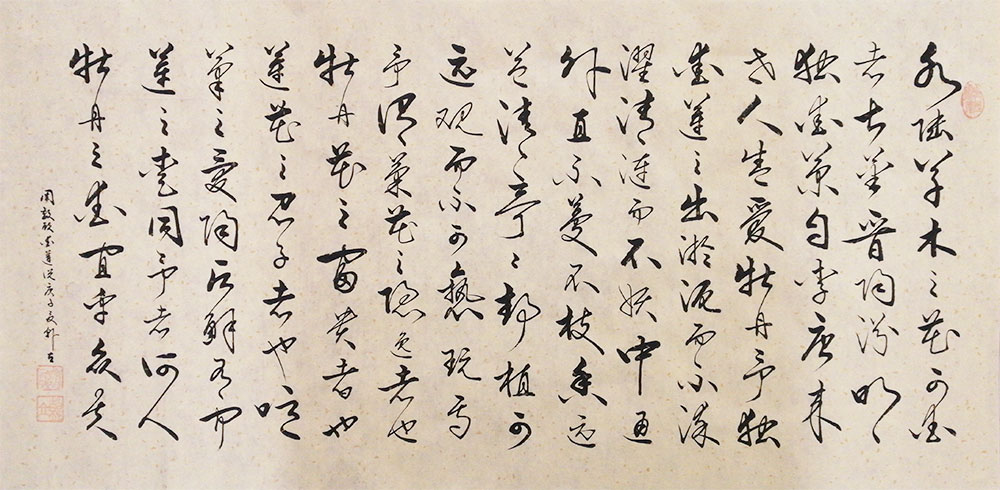 水陆草木之花可爱
者甚蕃晋陶渊明
独爱菊自李唐来
世人盛爱牡丹予独
爱莲之出淤泥而不染
濯清涟而不妖中通
外直不蔓不枝香远
益清亭亭静植可
远观而不可亵玩焉
予谓菊花之隐逸者也
牡丹花之富贵者也
莲花之君子者也噫
菊之爱陶后鲜有闻
莲之爱同予者何人
牡丹之爱宜乎众矣
周敦颐爱莲说庚子夏